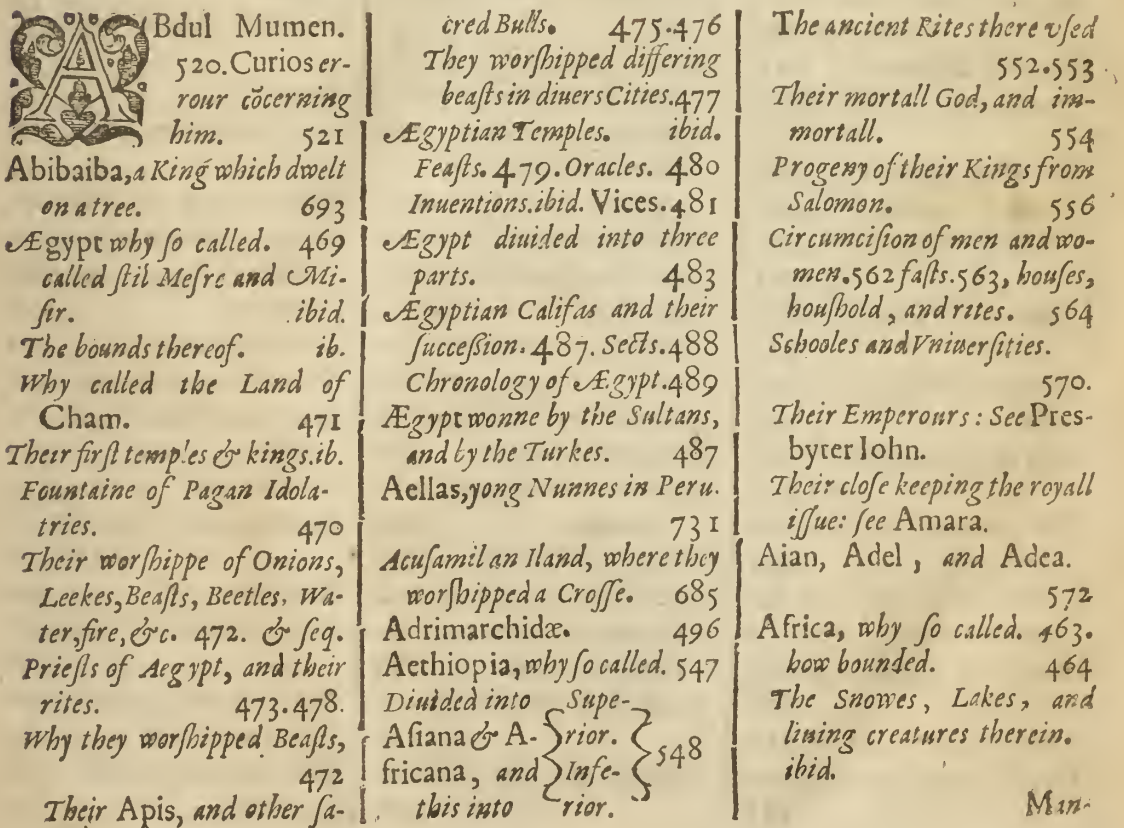 ABdul Mumen.
520. Curios er-
rour cõcerning
him. 521
Abibaiba, a King which dwelt
on a tree. 693
Ægypt why ſo called. 469
called ſtil Meſre and Mi-
ſir. ibid.
The bounds thereof. ib.
Why called the Land of
Cham. 471
Their firſt temples & kings. ib.
Fountaine of Pagan Idola-
tries. 470
Their worſhippe of Onions,
Leekes, Beaſts, Beetles, Wa-
ter, fire, &c. 472. & ſeq.
Prieſts of Aegypt, and their
rites. 473.478.
Why they worſhipped Beaſts,
472
Their Apis, and other ſa-
cred Bulls. 475.476
They worſhipped differing
beaſts in diuers Cities. 477
Ægyptian Temples. ibid.
Feaſts. 479. Oracles. 480
Inuentions. ibid. Vices. 481
Ægypt diuided into three
parts. 483
Ægyptian Califas and their
ſucceſsion. 487. Sects. 488
Chronology of Ægypt. 489
Ægypt wonne by the Sultans,
and by the Turkes. 487
Aellas, yong Nunnes in Peru.
731
Acuſamil an Iland, where they
worſhipped a Croſſe. 685
Adrimarchidæ. 496
Aethiopia, why ſo called. 547
Diuided into Supe-
Aſiana & A- rior.
fricana, and Infe- 548
this into rior.
The ancient Rites there vſed
552.553
Their mortall God, and im-
mortall. 554
Progeny of their Kings from
Salomon. 556
Circumciſion of men and wo-
men. 562 faſts. 563, houſes,
houſhold, and rites. 564
Schooles and Vniuerſities.
570.
Their Emperours: See Pres-
byter Iohn.
Their cloſe keeping the royall
iſſue: ſee Amara.
Aian, Adel, and Adea.
572
Africa, why ſo called. 463.
how bounded. 464
The Snowes, Lakes, and
liuing creatures therein.
ibid.
Man-